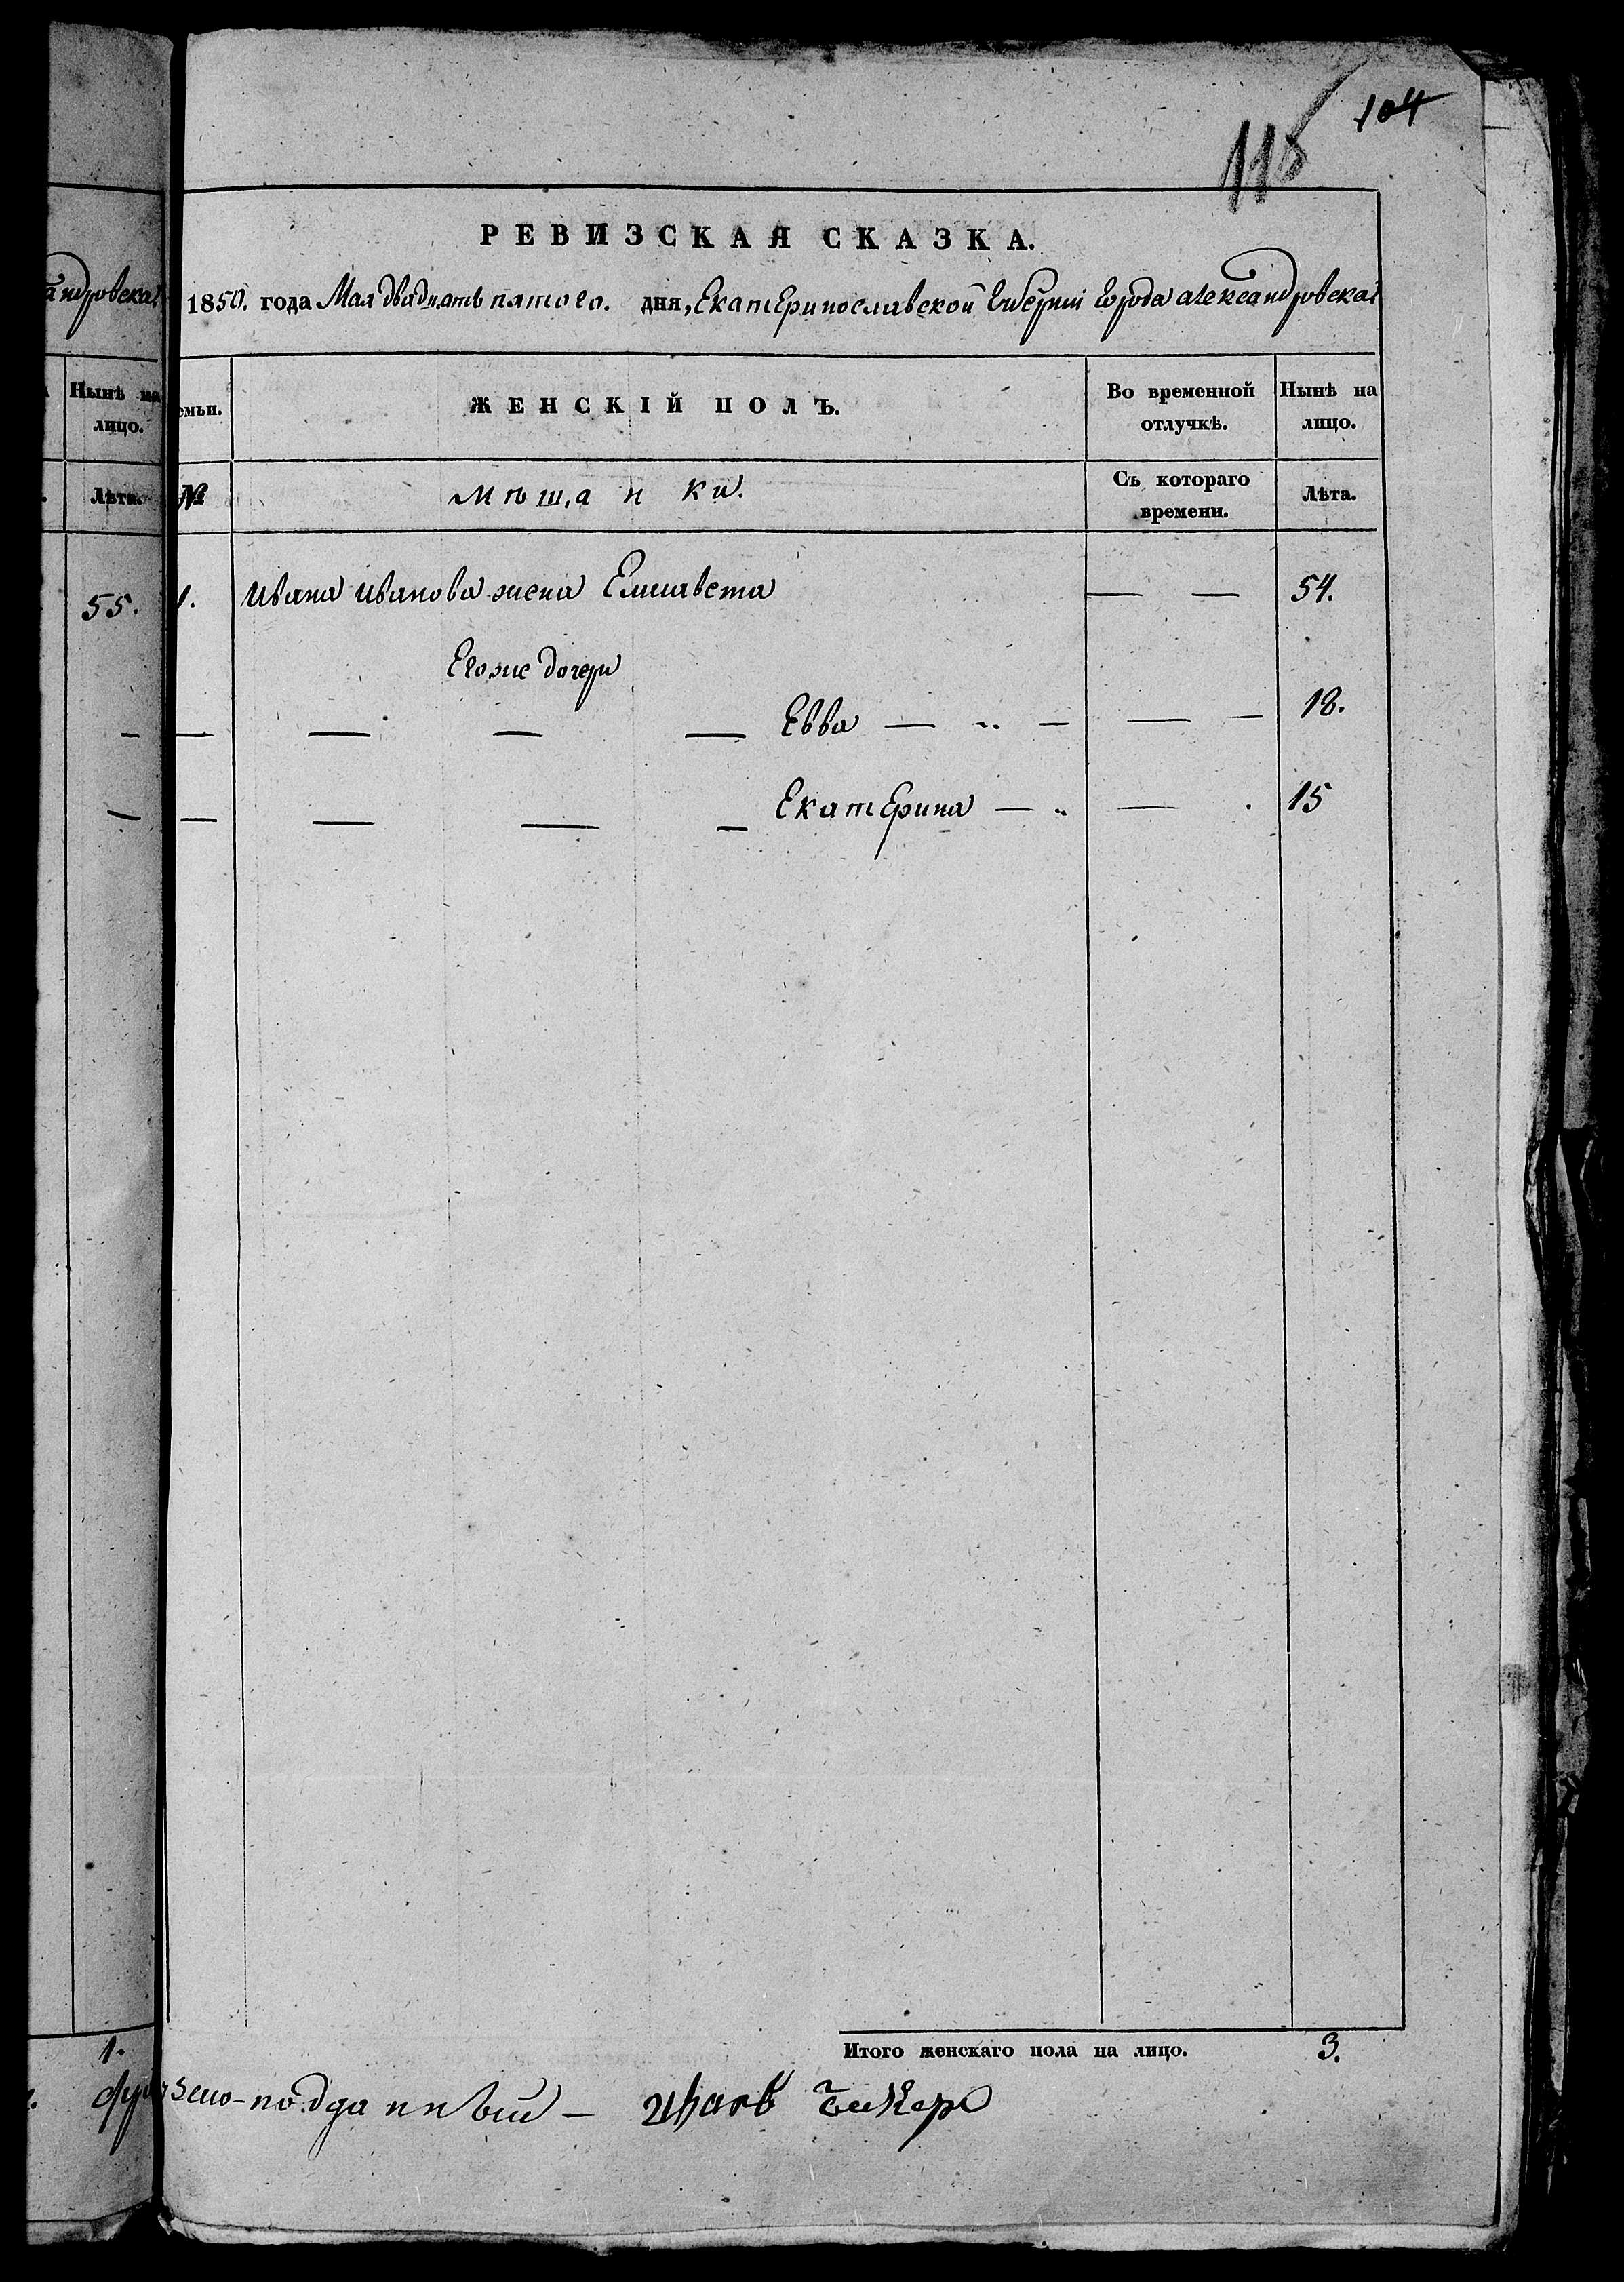 104
115
РЕВИЗСКАЯ СКАЗКА.
андровска
1850. года Мая двадцать пятого. дня, Екатеринославской Губерніи Города Александровска
Нынѣ на лицо.
емьи.
ЖЕНСКІЙ ПОЛЪ.
Во временной отлучкѣ.
Нынѣ на лицо.
Лѣта.
№
Мѣщанки.
Съ котораго времени.
Лѣта.
55.
1. Ивана Иванова жена Елисавета — — 54.
Егоже дочери
— — — — — Евва — „ — — — 18.
— — — — — Екатерина — „ — . 15
1.
Итого женскаго пола на лицо. 3.
подданный — Иванъ